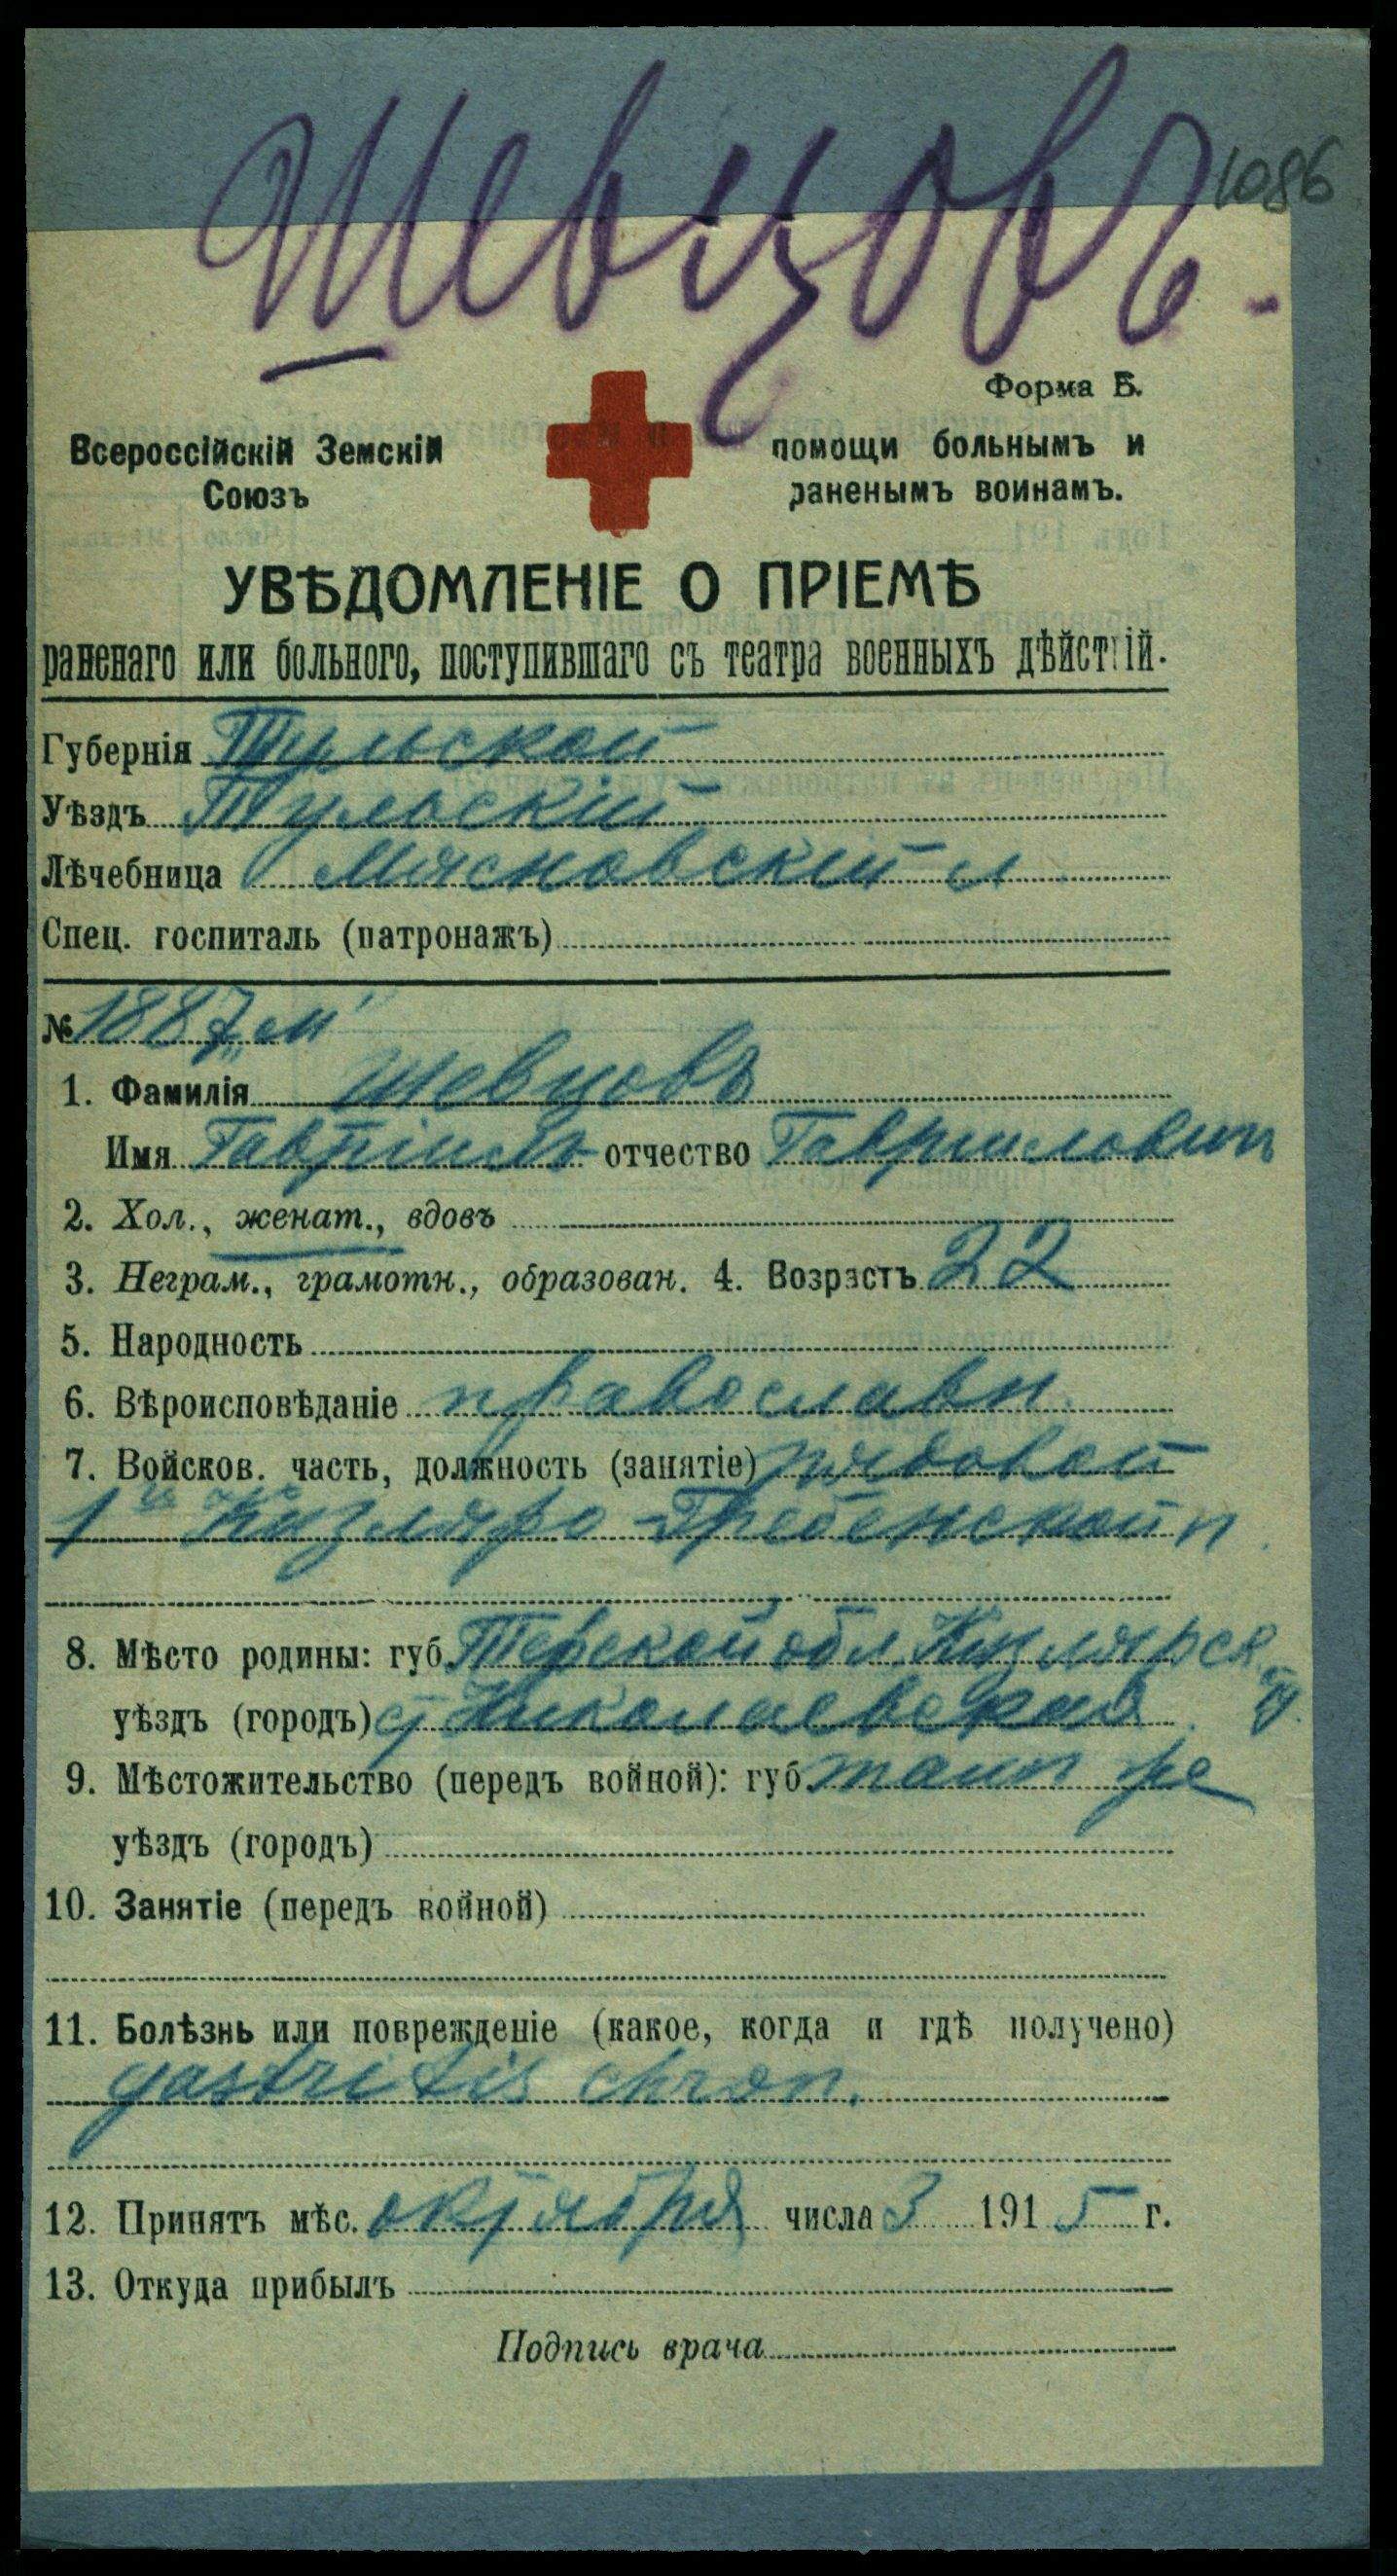 Шевцовъ.
1086
Форма Б.
Всероссійскій Земскій
Союзъ
помощи больнымъ и
раненымъ воинамъ.
УВѢДОМЛЕНІЕ О ПРІЕМѢ
раненаго или больного, поступившаго съ театра военныхъ дѣйствій.
Губернія Тульской
Уѣздъ Тульскій
Лѣчебница Мясновскій л
Спец. госпиталь (патронажъ)
№ 1887
1. Фамилія Шевцовъ
Имя Гавріилъ отчество Гаврилович
2. Хол., женат., вдовъ
3. Неграм., грамотн., образован. 4. Возрастъ 22
5. Народность
6. Вѣроисповѣданіе православн.
7. Войсков. часть, должность (занятіе) рядовой
1й Кизляро-Гребенской п.
8. Мѣсто родины: губ. Терской обл. Кизлярск
уѣздъ (городъ) Николаевская у.
9. Мѣстожительство (передъ войной): губ. тамъ же
уѣздъ (городъ)
10. Занятіе (передъ войной)
11. Болѣзнь или поврежденіе (какое, когда и гдѣ получено)
gastritis chron.
12. Принятъ мѣс. октября числа 3 1915 г.
13. Откуда прибылъ
Подпись врача